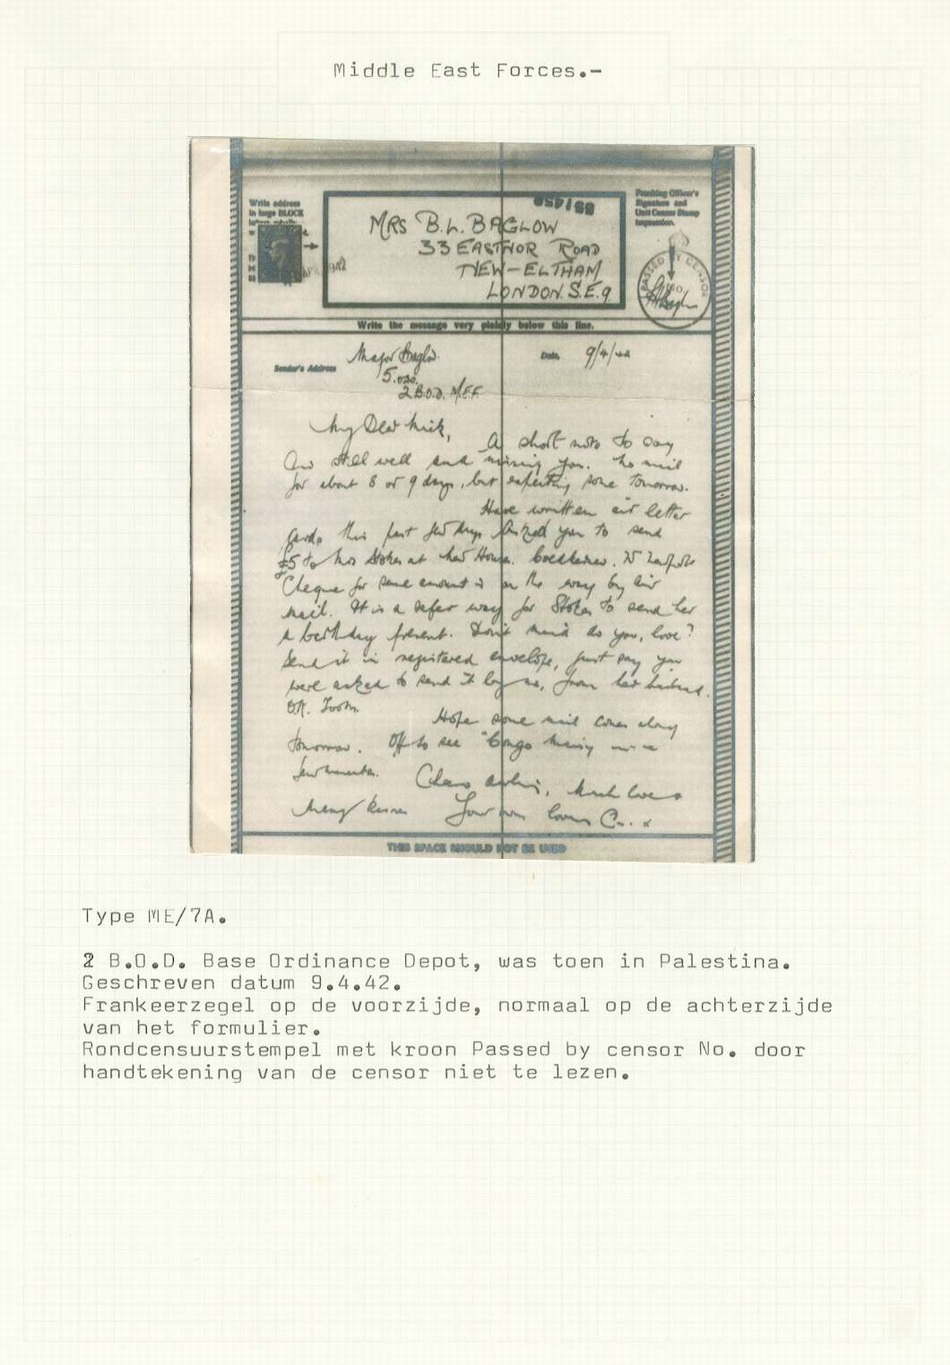 Middle East Forces.-
Write address
in large BLOCK
MRS B.L. BAGLOW
33 EASTNOR ROAD
NEW-ELTHAM
LONDON. S.E.9
Signature and
Unit Censor Stamp
PASSED BY CENSOR
NO.
1942
Write the message very plainly below this line.
Sender's Address
Major Baglow
2 B.O.D. M.E.F.
Date
9/4/42
My Dear
A short note to say
am still well and missing you. No mail
for about 8 or 9 days, but expecting some tomorrow.
Have written air letter
cards this past few days. Asked you to send
£5 to Mrs Stokes at
Cheque for same amount is on the way by air
mail. It is a safer way for Stokes to send her
a birthday present. Don't mind do you, love?
Send it in registered envelope, just say you
were asked to send it by me, from her husband.
OK.
Hope some mail comes along
tomorrow. Off to see
Much love
Many kisses Your own
THIS SPACE SHOULD NOT BE USED
Type ME/7A.
2 B.O.D. Base Ordinance Depot, was toen in Palestina.
Geschreven datum 9.4.42.
Frankeerzegel op de voorzijde, normaal op de achterzijde
van het formulier.
Rondcensuurstempel met kroon Passed by censor No. door
handtekening van de censor niet te lezen.